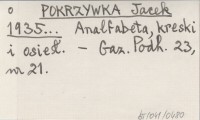 o POKRZYWKA Jacek
1935... Analfabeta, kreski
i osieł. – Gaz. Podh. 23,
nr 21.